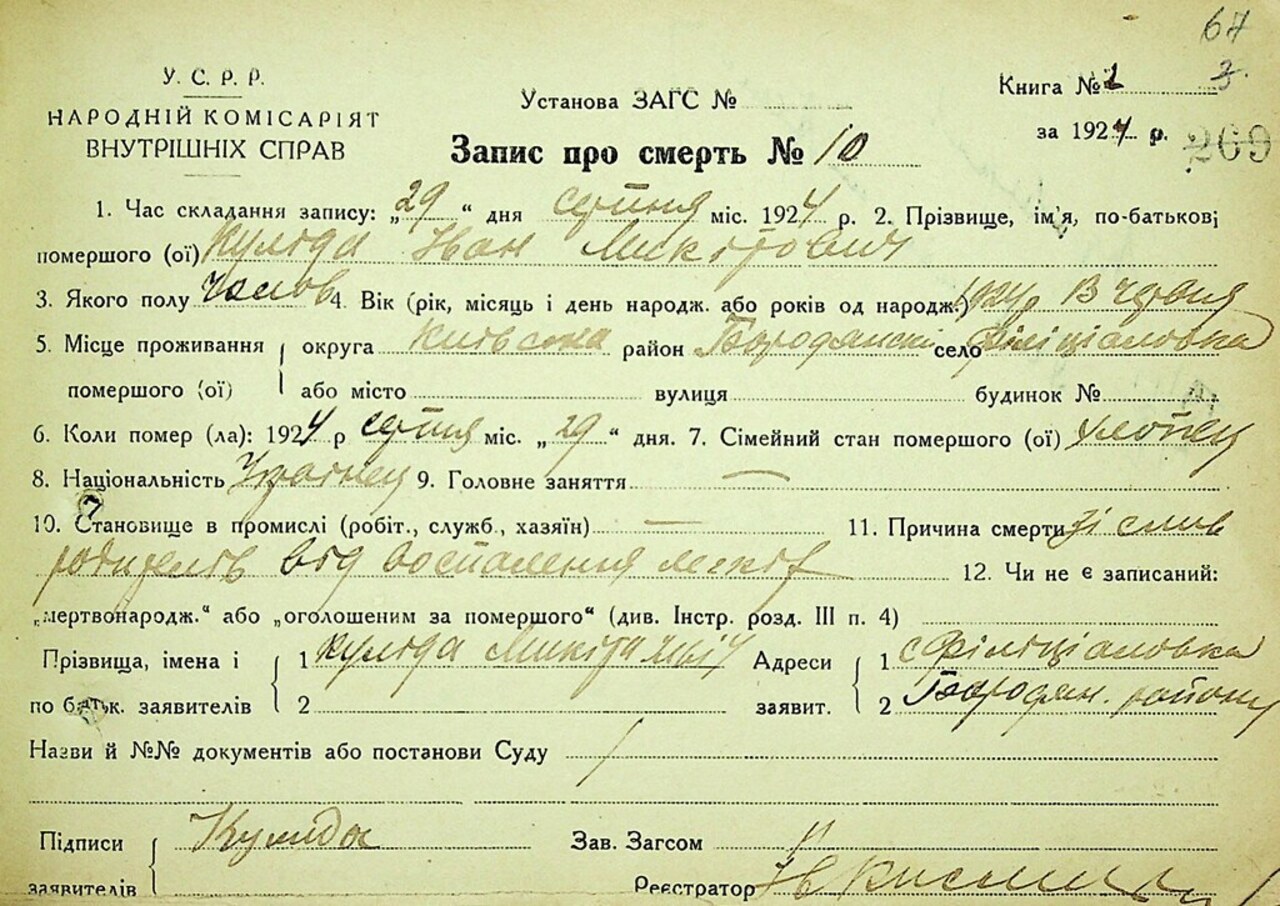 67
У. С. Р. Р.
НАРОДНІЙ КОМІСАРІЯТ
ВНУТРІШНІХ СПРАВ
Установа ЗАГС №
Книга № 1 3.
за 1924 р.
269
Запис про смерть № 10
1. Час складання запису: „29“ дня серпня міс. 1924 р. 2. Прізвище, ім'я, по-батькові
помершого (ої) Куліда Іван Микітович
3. Якого полу чолов 4. Вік (рік, місяць і день народж. або років од народж.) 1924 р 13 червня
5. Місце проживання помершого (ої) округа Київська район Бородянськ село Філіціановка
або місто вулиця будинок №
6. Коли помер (ла): 1924 р серпня міс. „29“ дня. 7. Сімейний стан помершого (ої) хлопец
8. Національність Українец 9. Головне заняття —
10. Становище в промислі (робіт., служб., хазяїн) — 11. Причина смерти зі слів
родителів від воспаления легкіх
12. Чи не є записаний:
„мертвонародж.“ або „оголошеним за помершого“ (див. Інстр. розд. III п. 4)
Прізвища, імена і по батьк. заявителів 1 Куліда Микіта
2
Адреси заявит. 1 с Філіціановка
2 Бородян. району
Назви й №№ документів або постанови Суду
Підписи заявителів Кулида
Зав. Загсом
Реєстратор